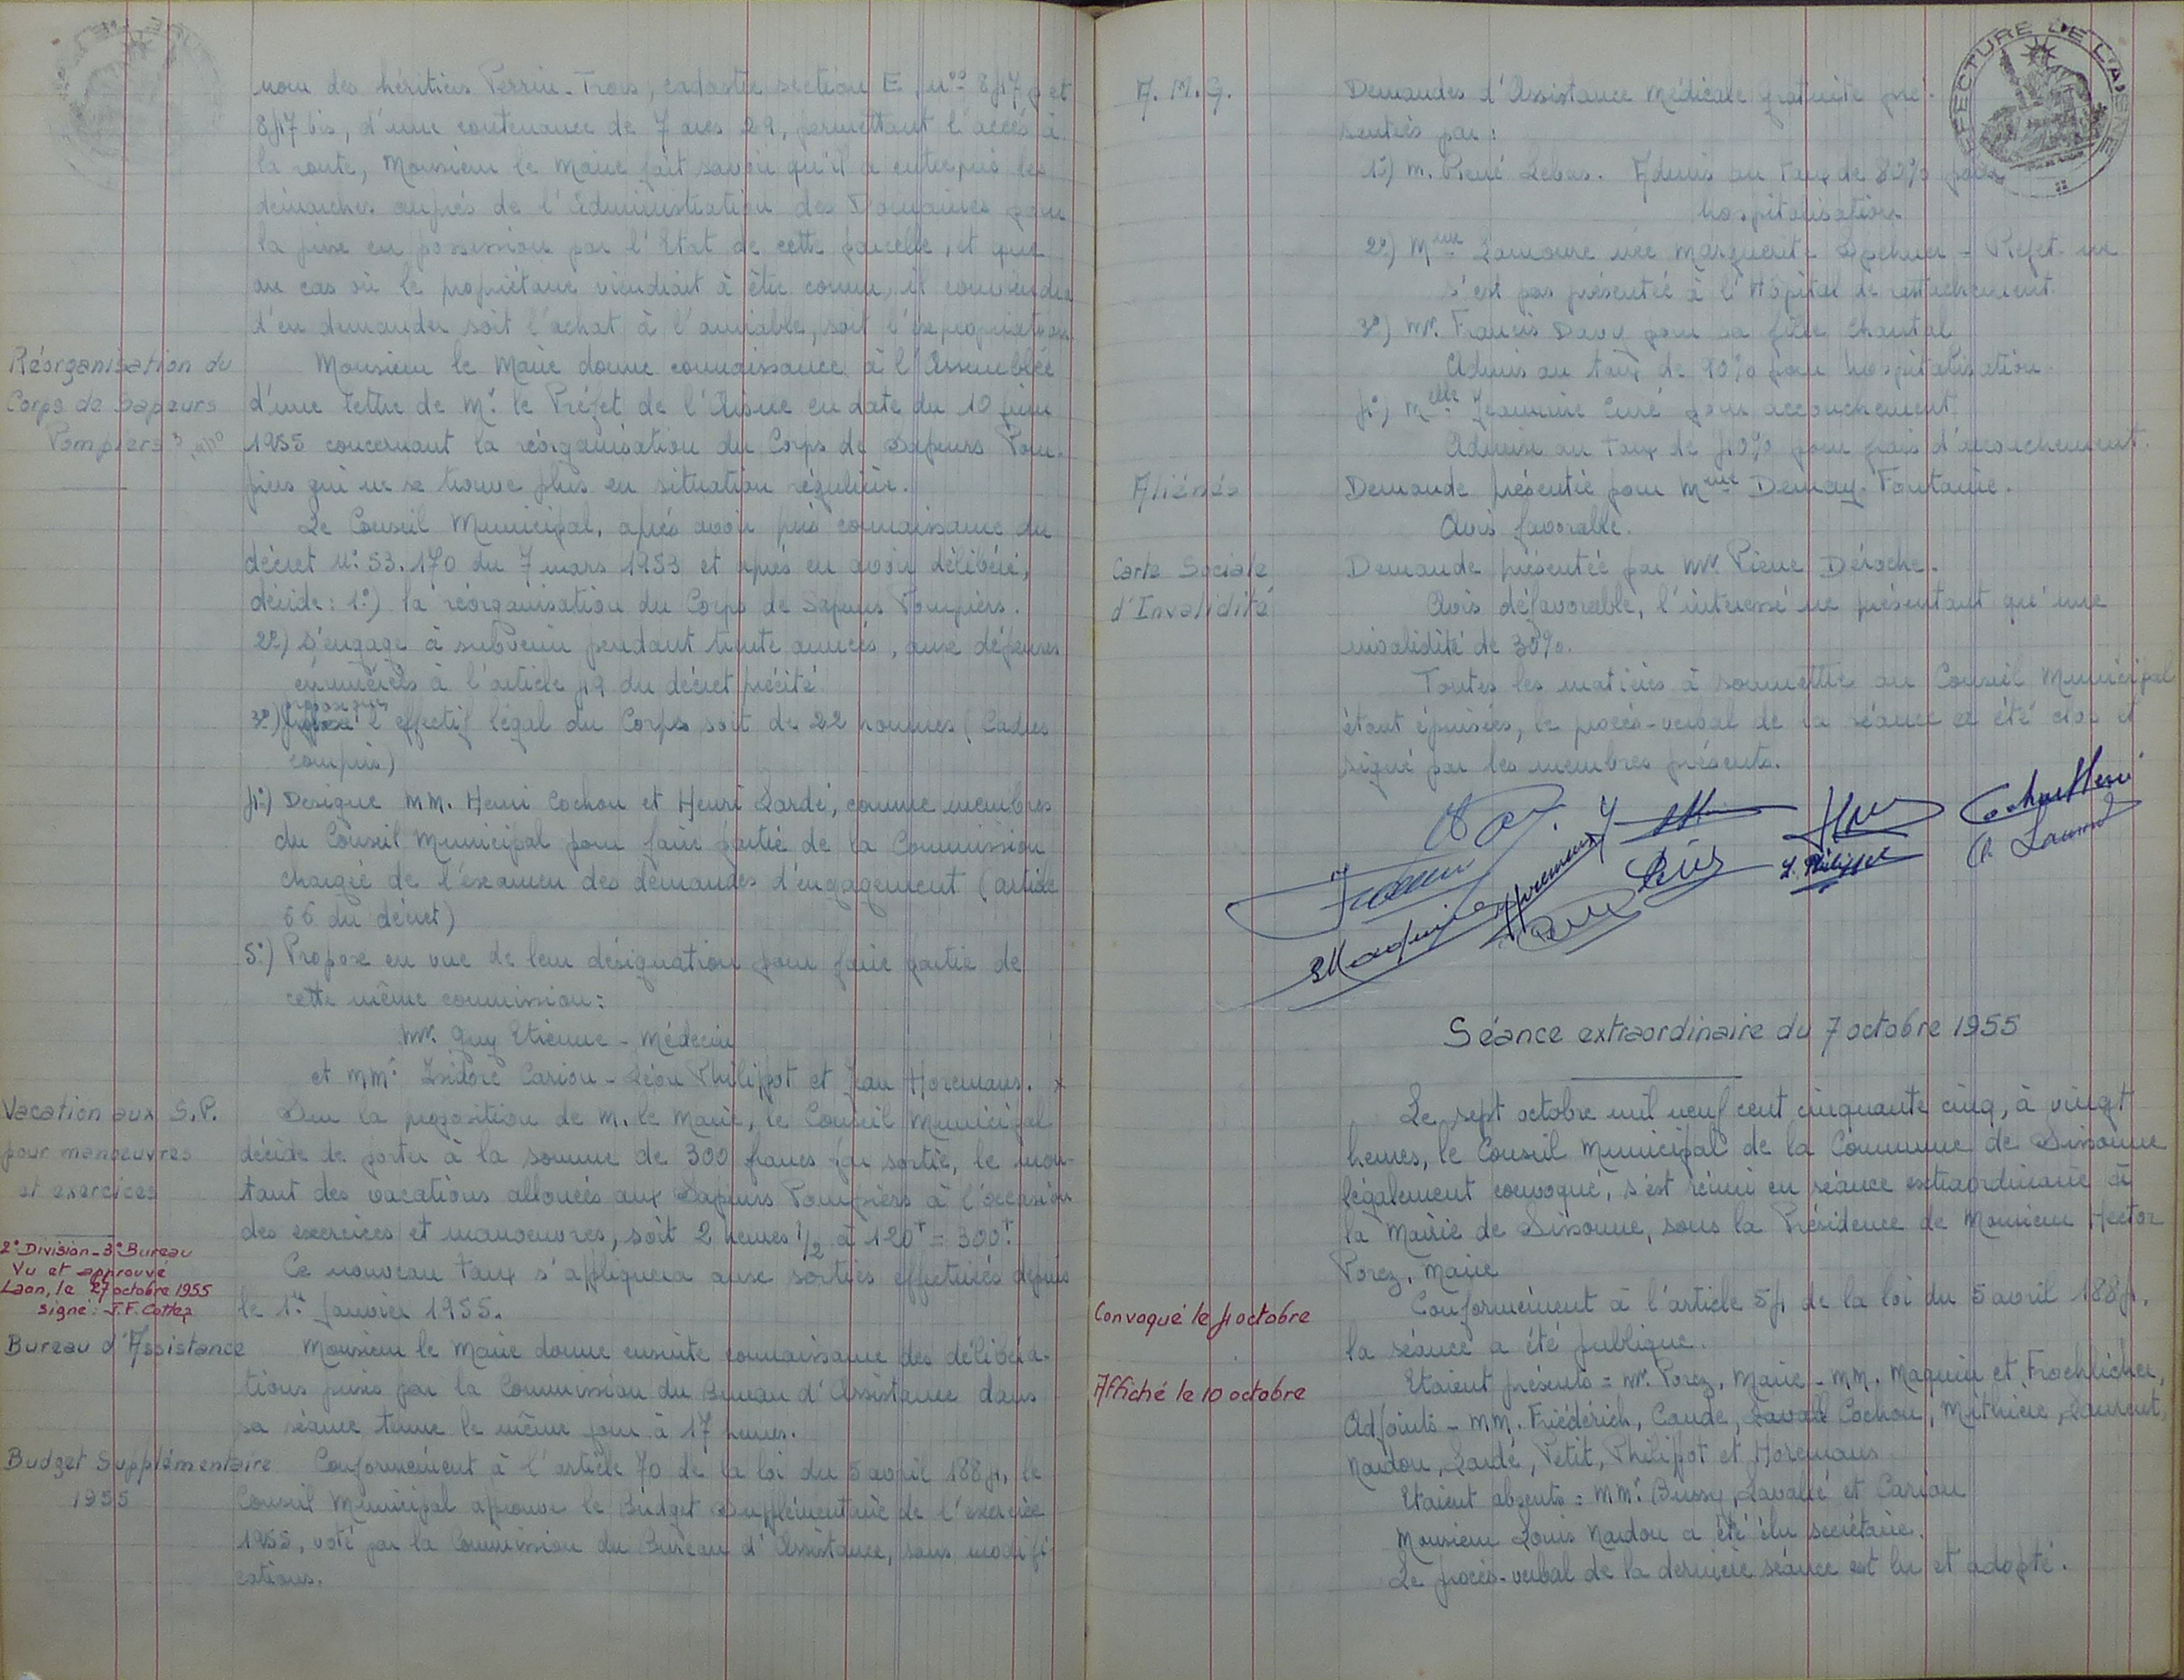 nom des héritiers Perrin-Trois, cadastrée section E, nos 847 p et
847 bis, d'une contenance de 7 ares 29, permettant l'accès à
la route, Monsieur le Maire fait savoir qu'il a entrepris les
démarches auprès de l'Administration des Domaines pour
la prise en possession par l'Etat de cette parcelle, et que
au cas où le propriétaire viendrait à être connu, il conviendra
d'en demander soit l'achat à l'amiable, soit l'expropriation
Réorganisation du
Corps de Sapeurs
Pompiers
Monsieur le Maire donne connaissance à l'Assemblée
d'une lettre de Mr le Préfet de l'Aisne en date du 10 juin
1955 concernant la réorganisation du Corps de Sapeurs Pom-
piers qui ne se trouve plus en situation régulière.
Le Conseil Municipal, après avoir pris connaissance du
décret N° 53.170 du 7 mars 1953 et après en avoir délibéré,
décide : 1°) la réorganisation du Corps de Sapeurs Pompiers.
2°) s'engage à subvenir pendant trente années, aux dépenses
énumérées à l'article 49 du décret précité
propose que
3°) l'effectif légal du Corps soit de 22 hommes (Cadres
compris)
4°) Désigne MM. Henri Cochon et Henri Lardé, comme membres
du Conseil Municipal pour faire partie de la Commission
chargée de l'examen des demandes d'engagement (article
66 du décret)
5°) Propose en vue de leur désignation pour faire partie de
cette même commission :
Mr. Guy Etienne - Médecin
et MM. Isidore Cariou - Léon Philippot et Jean Horemans. x
Vacation aux S.P.
pour manoeuvres
et exercices
Sur la proposition de M. le Maire, le Conseil Municipal
décide de porter à la somme de 300 francs par sortie, le mon-
tant des vacations allouées aux Sapeurs Pompiers à l'occasion
des exercices et manoeuvres, soit 2 heures 1/2 à 120f = 300f.
2° Division - 3° Bureau
Vu et approuvé
Laon, le 27 octobre 1955
signé : J.F. Cottez
Ce nouveau taux s'appliquera aux sorties effectuées depuis
le 1er Janvier 1955.
Bureau d'Assistance
Monsieur le Maire donne ensuite connaissance des délibéra-
tions prises par la Commission du Bureau d'Assistance dans
sa séance tenue le même jour à 17 heures.
Budget Supplémentaire
1955
Conformément à l'article 70 de la loi du 5 avril 1884, le
Conseil Municipal approuve le Budget Supplémentaire de l'exercice
1955, voté par la Commission du Bureau d'Assistance, sans modifi-
cations.
PREFECTURE DE L'AISNE
A. M. G.
Demandes d'Assistance Médicale gratuite pré-
sentées par :
1°) M. René Lebas. Admis au taux de 80% pour
hospitalisation
2°) Mme Lamoure née Marguerite - Rejet. ne
s'est pas présentée à l'Hôpital de rattachement
3°) Mr. Francis Davy pour sa fille Chantal
Admis au taux de 90% pour hospitalisation.
4°) Melle Jeannine Curé pour accouchement
Admise au taux de 40% pour frais d'accouchement.
Aliénés
Demande présentée pour Mme Demay-Fontaine.
Avis favorable.
Carte Sociale
d'Invalidité
Demande présentée par Mr. Pierre Déroche.
Avis défavorable, l'intéressé ne présentant qu'une
invalidité de 30%.
Toutes les matières à soumettre au Conseil Municipal
étant épuisées, le procès-verbal de la séance a été clos et
signé par les membres présents.
Cochon Henri
L. Philippot
Maquin
Séance extraordinaire du 7 octobre 1955
Le sept octobre mil neuf cent cinquante cinq, à vingt
heures, le Conseil Municipal de la Commune de Sissonne
légalement convoqué, s'est réuni en séance extraordinaire à
la Mairie de Sissonne, sous la Présidence de Monsieur Hector
Porez, Maire
Convoqué le 4 octobre
Conformément à l'article 54 de la loi du 5 avril 1884,
la séance a été publique.
Affiché le 10 octobre
Etaient présents = Mr. Porez, Maire - MM. Maquin et Froehlicher,
Adjoints - MM. Friédérich, Caude, Cochon, Mithière, Laurent,
Nardou, Lardé, Petit, Philippot et Horemans
Etaient absents = MM. Bussy, Lavallé et Cariou
Monsieur Louis Nardou a été élu secrétaire.
Le procès-verbal de la dernière séance est lu et adopté.